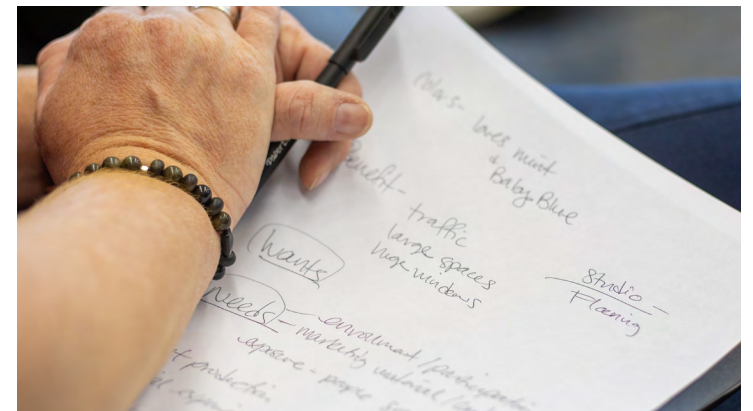 Colors- loves mint
& Baby Blue
Benefit- traffic
large spaces
huge windows
Studio-
Flooring
Wants
Needs - enrollment/participation
- marketing material/
exposure - people
production